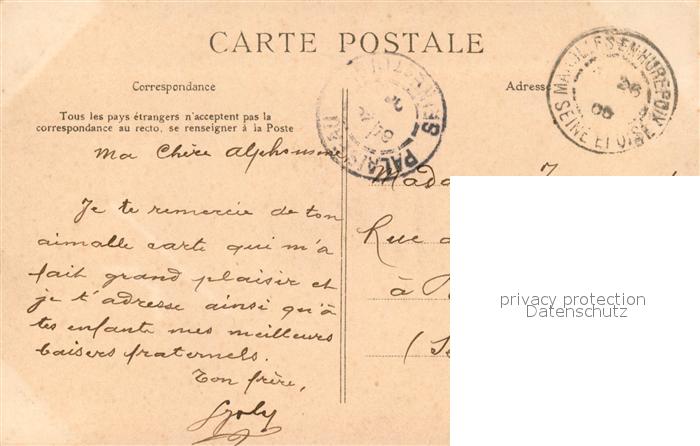 CARTE POSTALE
Correspondance
Adresse
Tous les pays étrangers n'acceptent pas la
correspondance au recto, se renseigner à la Poste
MAROLLES EN HUREPOIX
26
SEINE ET OISE
PALAISEAU
Ma Chère Alphonsine
Je te remercie de ton
aimable carte qui m'a
fait grand plaisir et
je t'adresse ainsi qu'à
tes enfants mes meilleurs
baisers fraternels.
Ton frère,
Mada
Rue
à
privacy protection
Datenschutz